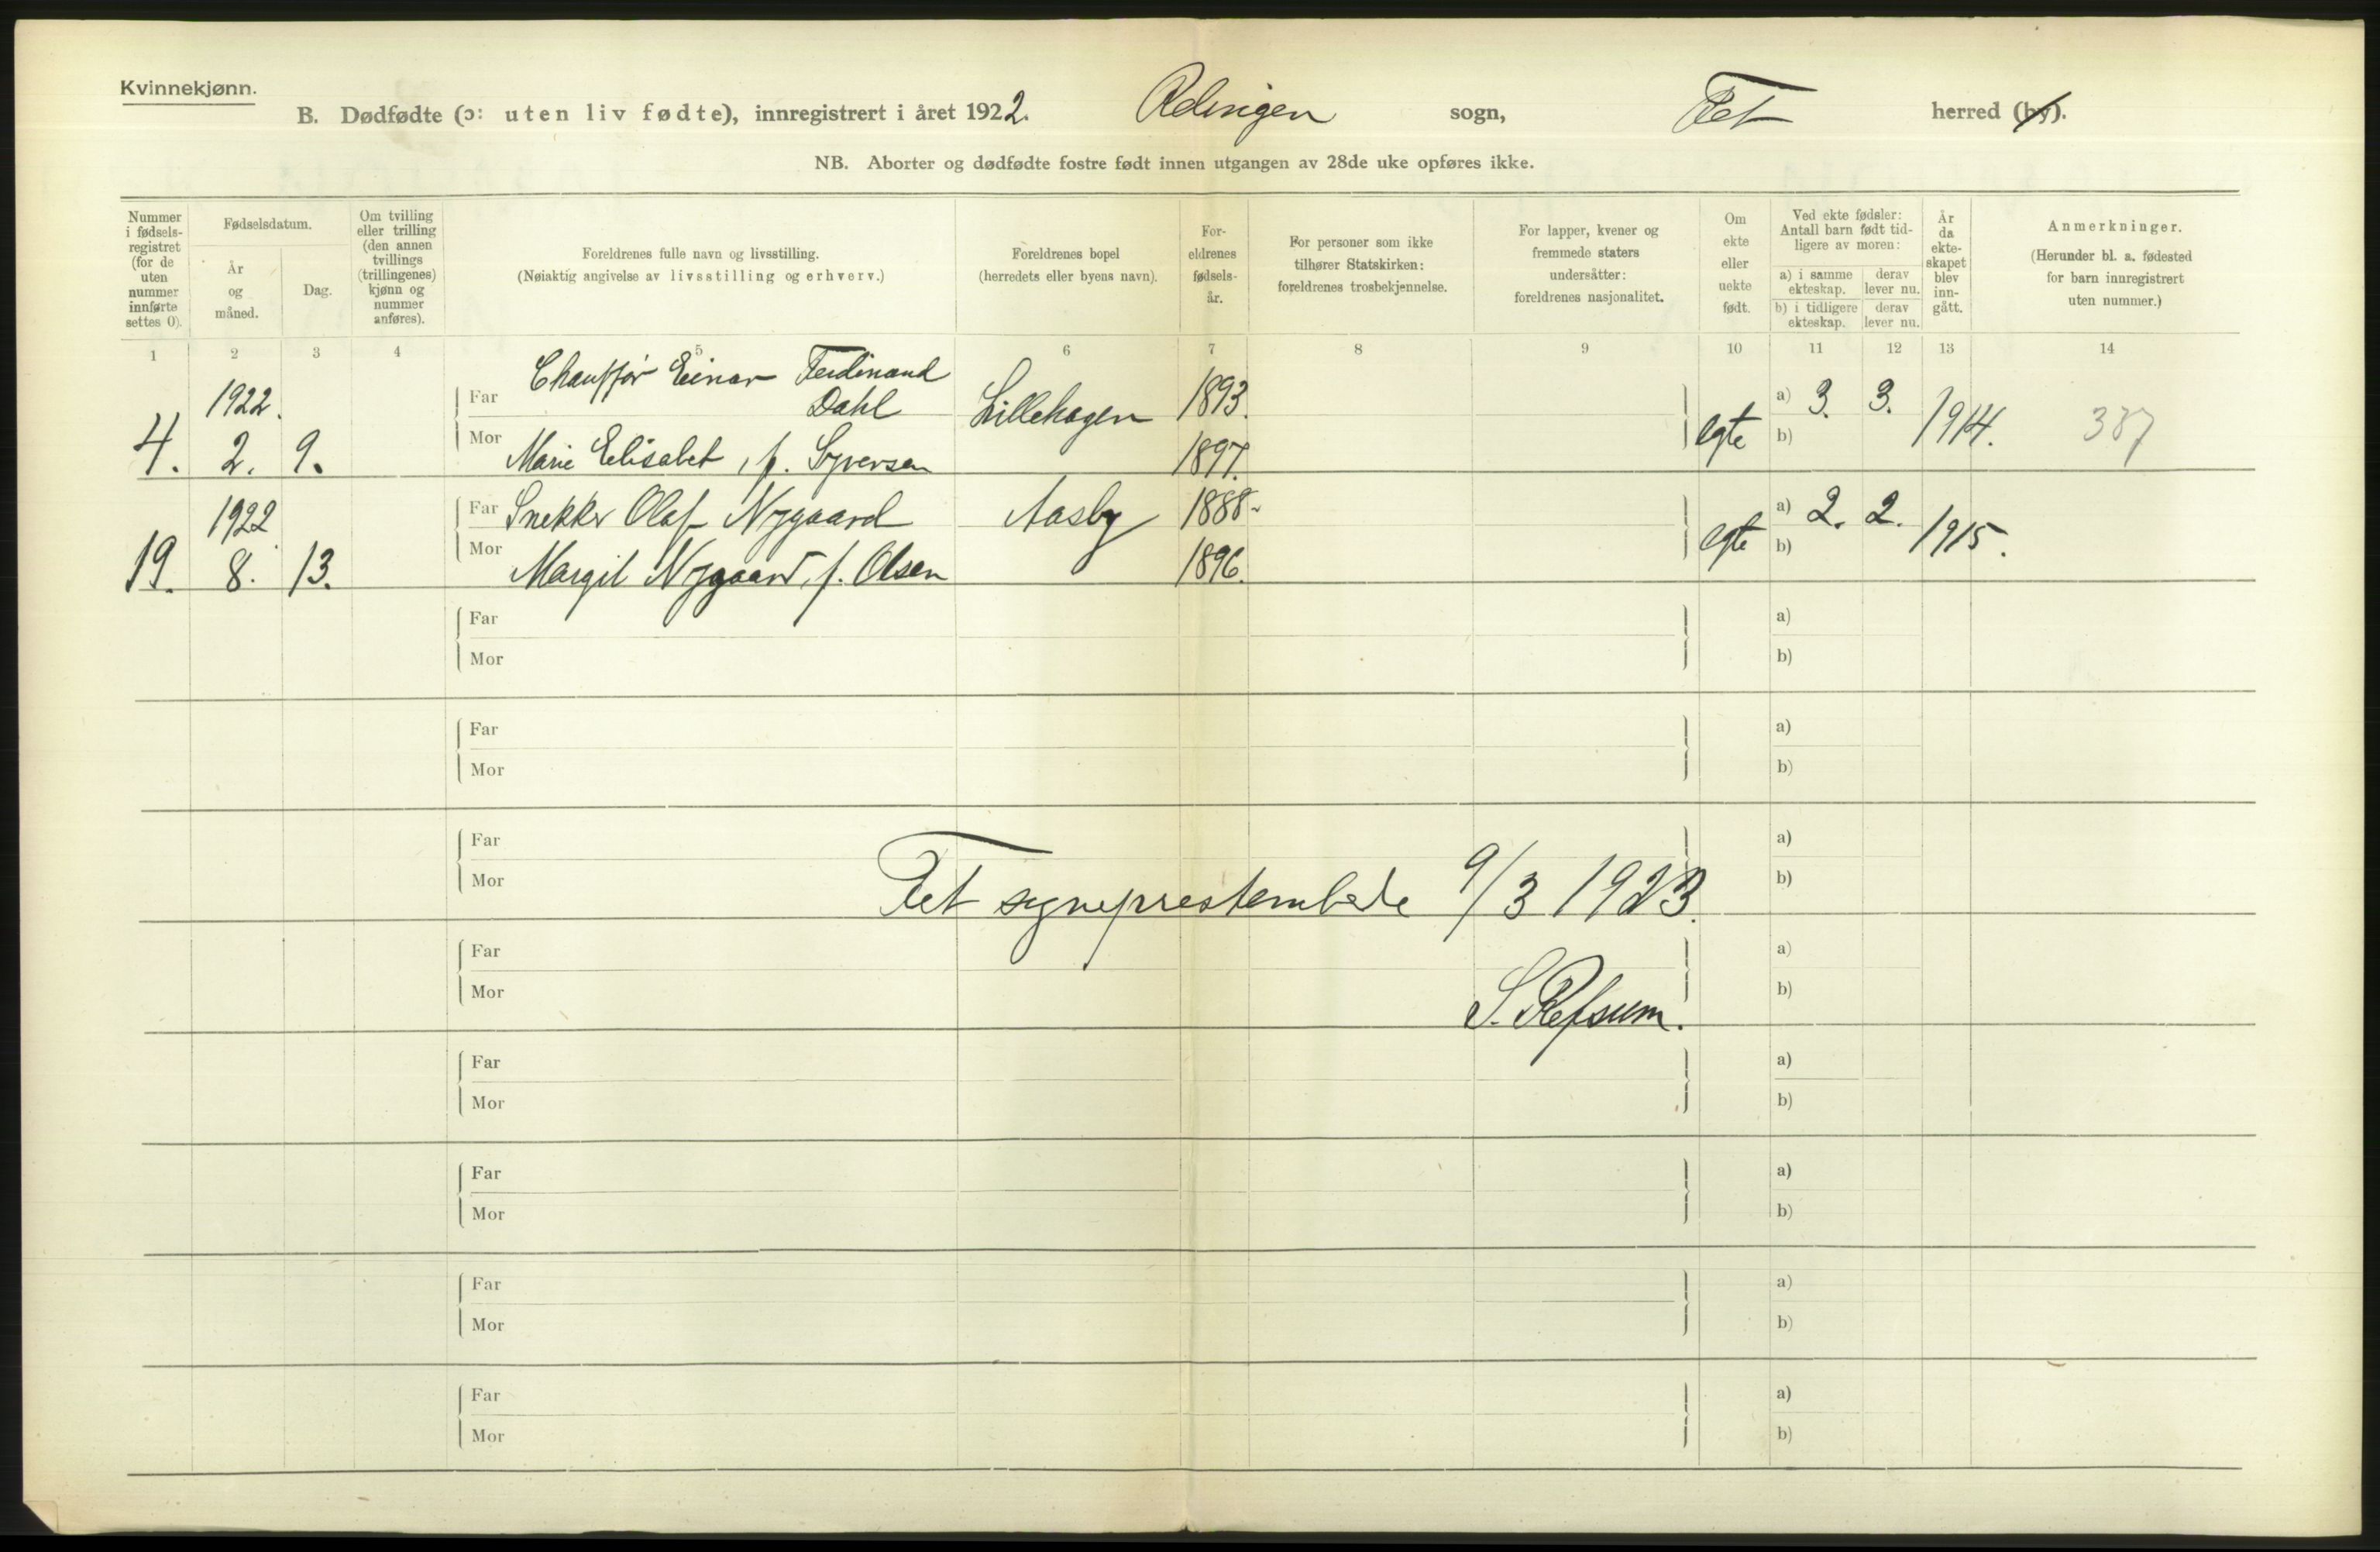 Kvinnekjønn.
B. Dødfødte (ɔ: uten liv fødte), innregistrert i året 1922. Rælingen sogn, Fet herred (by).
NB. Aborter og dødfødte fostre født innen utgangen av 28de uke opføres ikke.
Nummer i fødsels-registret (for de uten nummer innførte settes 0).
Fødselsdatum.
År og måned.
Dag.
Om tvilling eller trilling (den annen tvillings (trillingenes) kjønn og nummer anføres).
Foreldrenes fulle navn og livsstilling.
(Nøiaktig angivelse av livsstilling og erhverv.)
Foreldrenes bopel
(herredets eller byens navn).
For-eldrenes fødsels-år.
For personer som ikke tilhører Statskirken: foreldrenes trosbekjennelse.
For lapper, kvener og fremmede staters undersåtter: foreldrenes nasjonalitet.
Om ekte eller uekte født.
Ved ekte fødsler: Antall barn født tid-ligere av moren:
a) i samme ekteskap. derav lever nu.
b) i tidligere ekteskap. derav lever nu.
År da ekte-skapet blev inn-gått.
Anmerkninger.
(Herunder bl. a. fødested for barn innregistrert uten nummer.)
1 2 3 4 5 6 7 8 9 10 11 12 13 14
1922. Far Chauffør Einar Ferdinand
Dahl Lillehagen 1893. a) 3. 3.
4. 2. 9. Mor Marie Elisabet, f. Syversen 1897. egte b) 1914. 387
1922 Far Snekker Olaf Nygaard Aasby 1888. a) 2. 2.
19. 8. 13. Mor Margit Nygaard, f. Olsen 1896. egte b) 1915.
Far a)
Mor b)
Far a)
Mor b)
Far a)
Mor b)
Fet sogneprestembede 9/3 1923.
Far a)
Mor b)
S. Refsum.
Far a)
Mor b)
Far a)
Mor b)
Far a)
Mor b)
Far a)
Mor b)